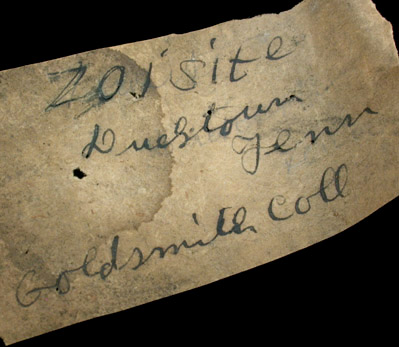 Zoisite
Ducktown
Tenn
Goldsmith Coll